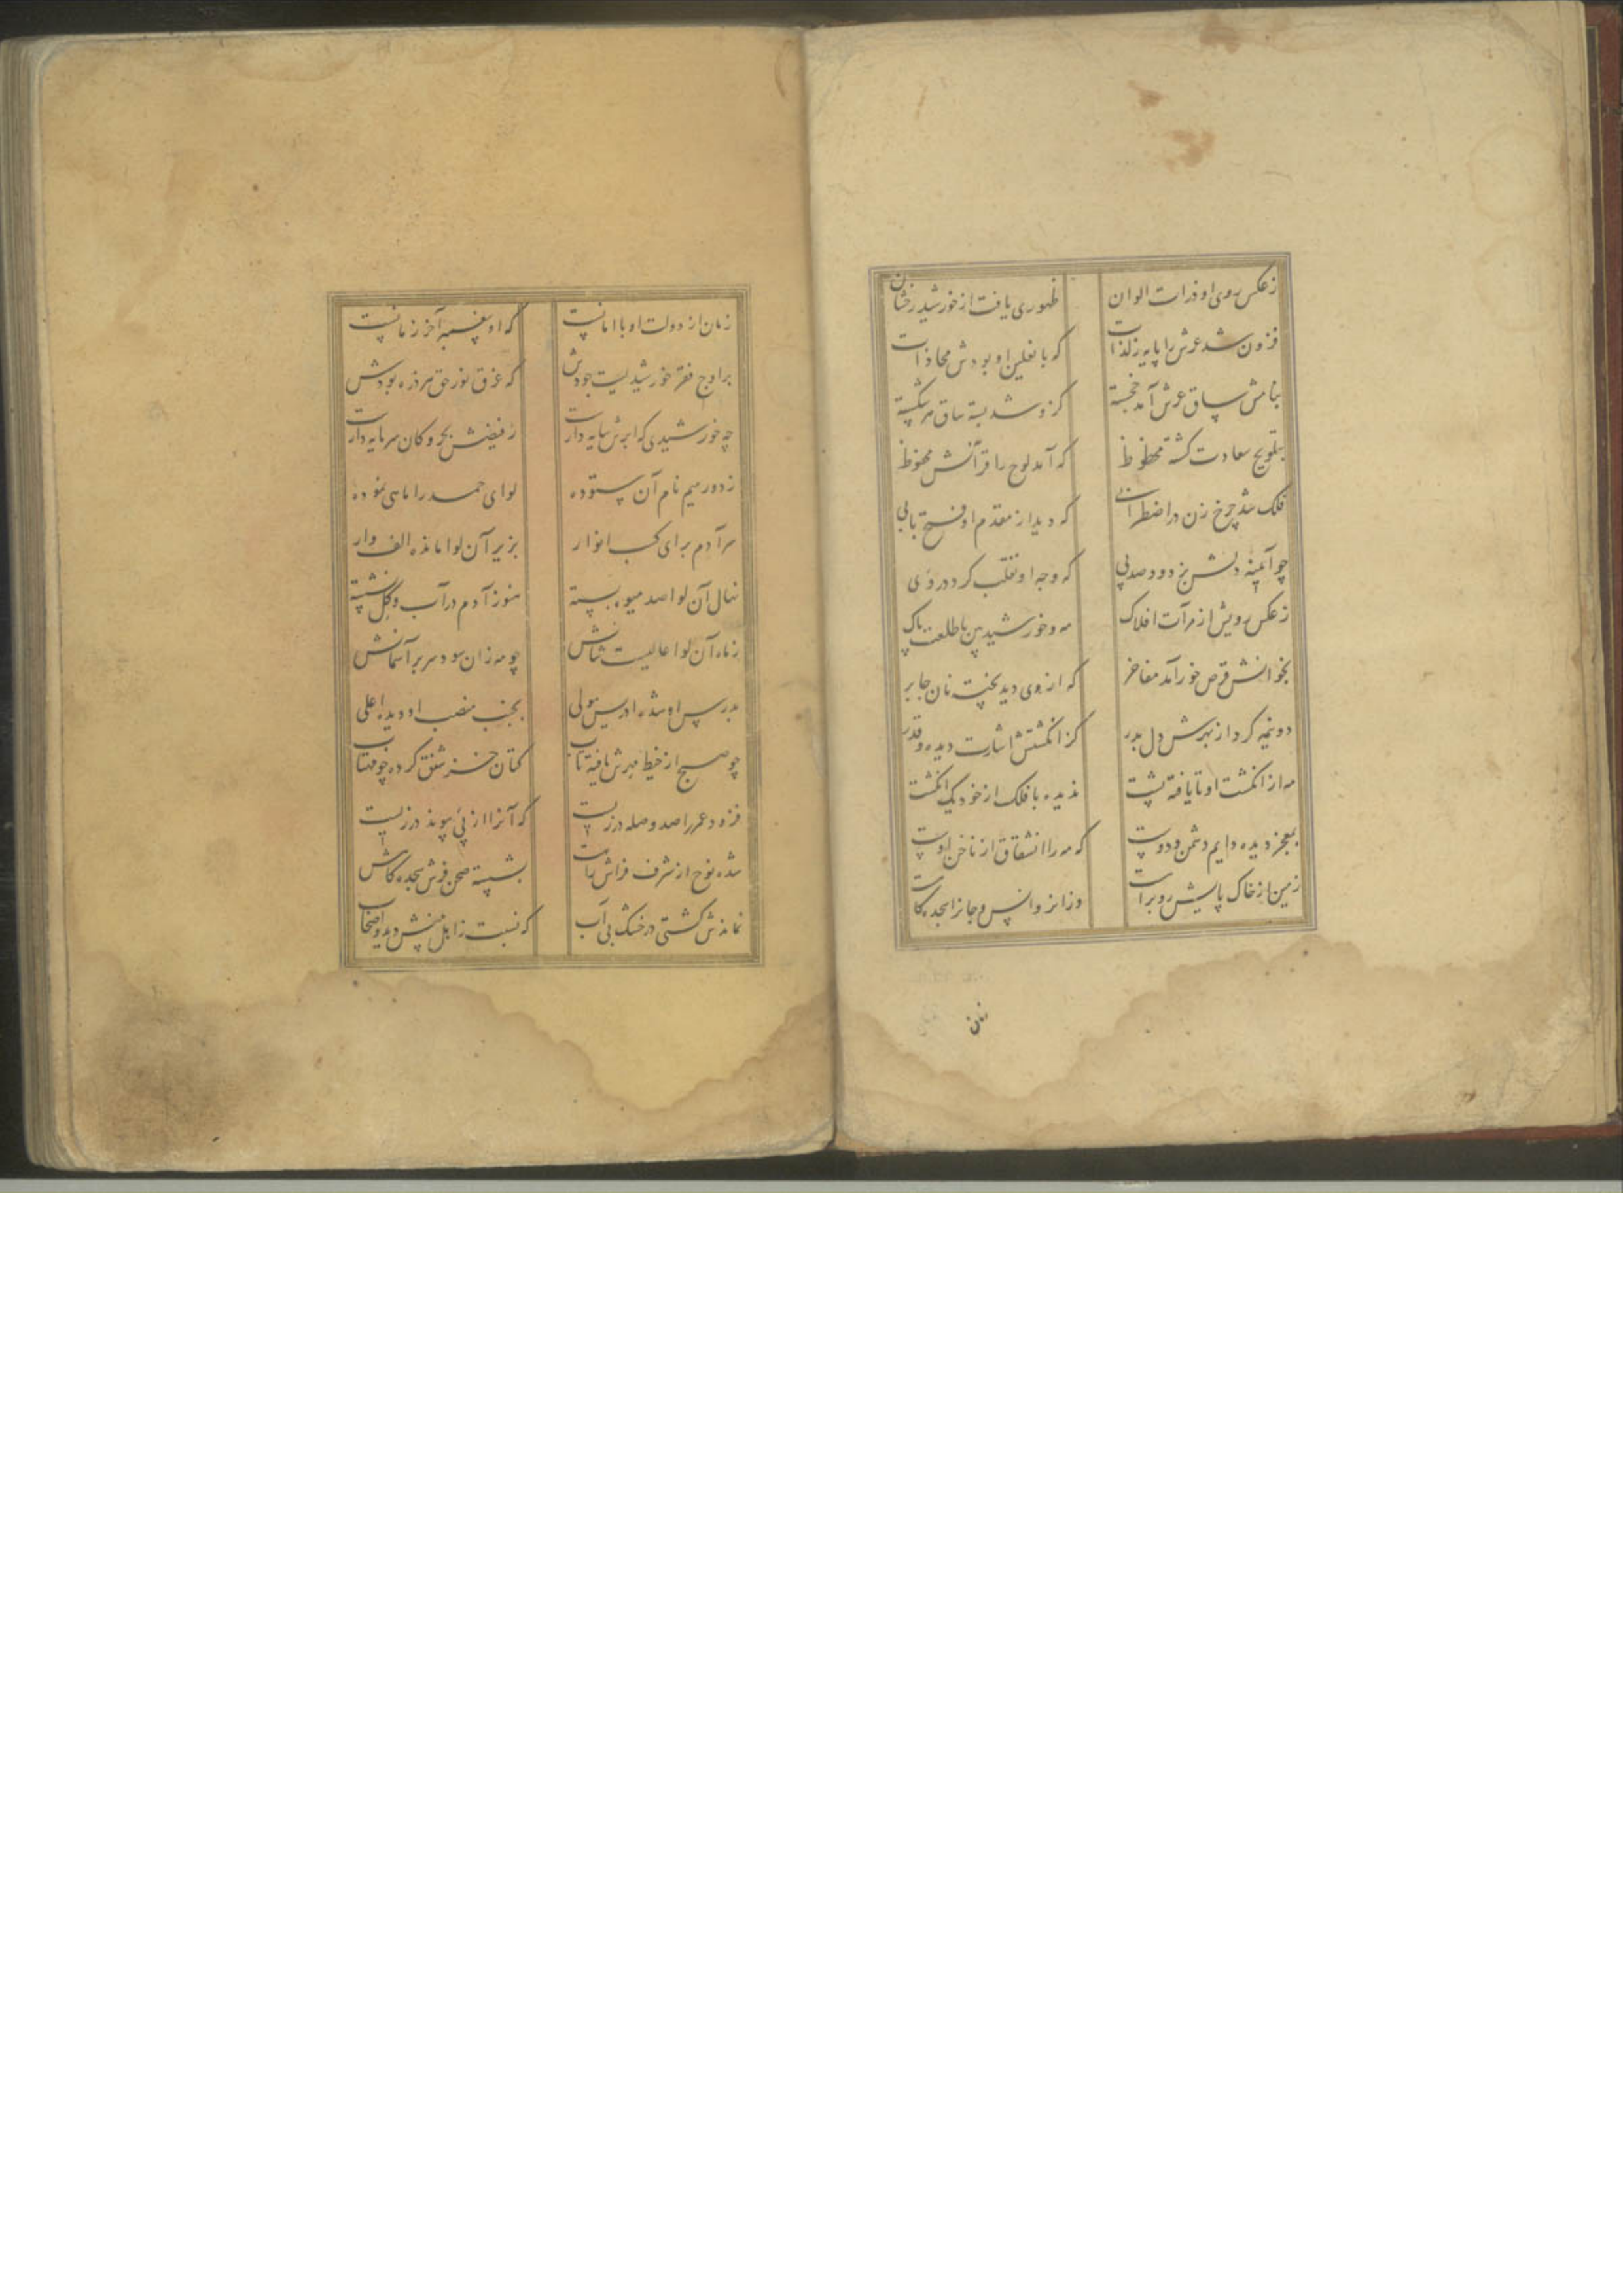 ز عکس روی او ذرات الوان ظهوری یافت از خورشید رخشان
فزون شد عرش را پایه ز لذات که با نعلین او بودش محاذات
بنامش ساق عرش آمد خجسته کزو شد بسته ساق هر شکسته
بتلویح سعادت گشته محظوظ که آمد لوح را قرآنش محفوظ
فلک شد چرخ زن در اضطرابی که دید از مقدم او فتح بابی
چو آیینه دلش بزدود صد پی که وجه او تقلب کرد در وی
ز عکس رویش از مرآت افلاک مه و خورشید بین با طلعت پاک
بخوانش قرص خور آمد مفاخر که از وی دید بخت نان جابر
دو نیمه کرد از بهرش دل بدر کز انگشتش اشارت دیده و قدر
مه از انگشت او تا یافته پشت ندیده با فلک از خود یک انگشت
بمعجز دیده دایم دشمن و دوست که مه را انشقاق از ناخن اوست
زمین از خاک پایش روبراهست وزانرو انس و جانرا سجده گاهست
زمان
زمان از دولت او با امانست که او پیغمبر آخر زمانست
بر اوج فقر خورشیدیست جودش که غرق نور حق هر ذره بودش
چه خورشیدی که ابرش سایه دارست ز فیضش بحر و کان سرمایه دارست
ز دور میم نام آن ستوده لوای حمد را ماهی نموده
سر آدم برای کسب انوار بزیر آن لوا مانده الف وار
نهال آن لوا صد میوه بسته هنوز آدم در آب و گل نشسته
ز ماه آن لوا عالیست شانش چو مه زان سود سر بر آسمانش
بدرس او شده ادریس مولی بجنب منصب او دیده اعلی
چو صبح از خیط مهرش یافته تاب کتان خز شفق کرده چو مهتاب
فزود عمر را صد وصله درزیست که آنرا از پی پیوند درزیست
شده نوح از شرف فراش راهست بشسته صحن فرش سجده گاهش
نماندش کشتی در خشک بی آب که نسبت ز اهل بینش دید و اصحاب